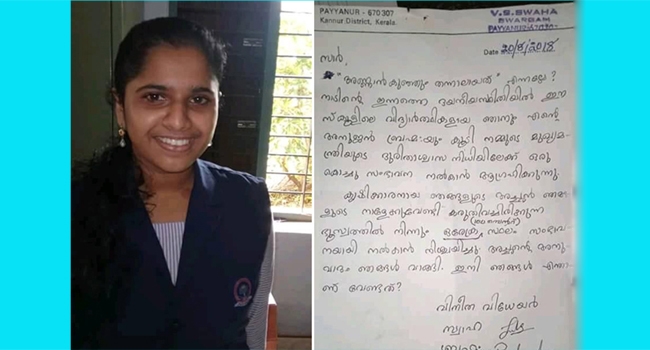 PAYYANUR - 670 307
Kannur District, Kerala.
V.S. SWAHA
SWARGAM
Date 20/8/2018
സാർ,
"അണ്ണാൻകുഞ്ഞും തന്നാലായത്" എന്നല്ലേ?
നാടിന്റെ ഇന്നത്തെ ദയനീയസ്ഥിതിയിൽ ഈ
സ്കൂളിലെ വിദ്യാർത്ഥികളായ ഞാനും എന്റെ
അനുജൻ ബ്രഹ്മയും കൂടി നമ്മുടെ മുഖ്യമ-
ന്ത്രിയുടെ ദുരിതാശ്വാസ നിധിയിലേക്ക് ഒരു
കൊച്ചു സംഭാവന നൽകാൻ ആഗ്രഹിക്കുന്നു.
കൃഷിക്കാരനായ ഞങ്ങളുടെ അച്ഛൻ ഞങ്ങ-
ളുടെ നാളേക്കുവേണ്ടി കരുതിവച്ചിരിക്കുന്ന
ഭൂസ്വത്തിൽ നിന്നും ഒരേക്ര സ്ഥലം സംഭാവ-
നയായി നൽകാൻ നിശ്ചയിച്ചു. അച്ഛന്റെ അനു-
വാദം ഞങ്ങൾ വാങ്ങി. ഇനി ഞങ്ങൾ എന്താ-
ണ് വേണ്ടത്?
വിനീത വിധേയർ
സ്വാഹ